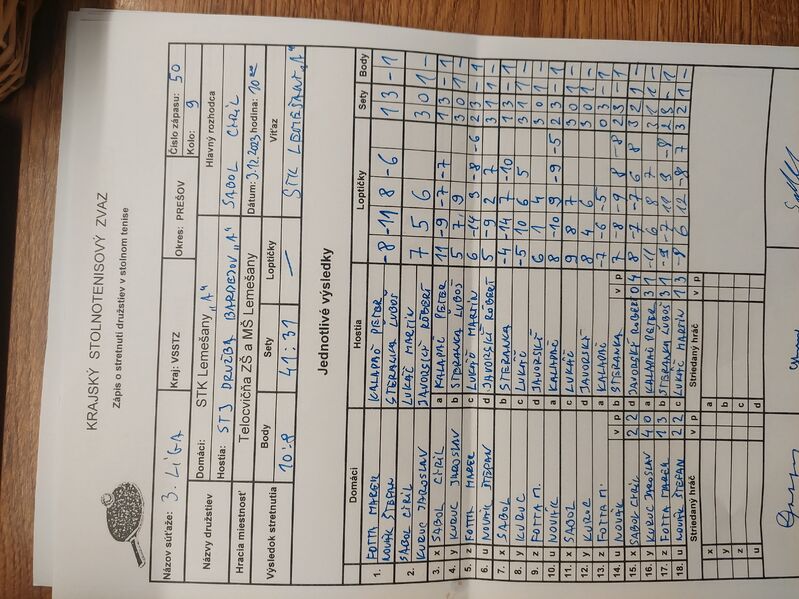 KRAJSKÝ STOLNOTENISOVÝ ZVAZ
Zápis o stretnutí družstiev v stolnom tenise
Názov súťaže: 3. LIGA Kraj: VSSTZ Okres: PREŠOV Číslo zápasu: 50
Kolo: 9
Názvy družstiev Domáci: STK Lemešany "A" Hlavný rozhodca
Hostia: STJ DRUŽBA BARDEJOV "A" SABOL CIRIL
Hracia miestnosť Telocvičňa ZŠ a MŠ Lemešany Dátum: 3.12.2023 hodina: 10 00
Výsledok stretnutia Body Sety Loptičky Víťaz
10:8 41:31 — STK LEMEŠANY "A"
Jednotlivé výsledky
Domáci Hostia Loptičky Sety Body
1. FOTTA MAREK KALAPAČ PETER
NOVÁK ŠTEFAN ŠTEFANKA ĽUBOŠ -8 -11 8 -6 1 3 - 1
2. SABOL CIRIL LUKÁČ MARTIN
KURUC JAROSLAV JAVORSKÝ RÓBERT 7 5 6 3 0 1 -
3. x SABOL CIRIL a KALAPAČ PETER 11 -9 -7 -7 1 3 - 1
4. y KURUC JAROSLAV b ŠTEFANKA ĽUBOŠ 5 7 9 3 0 1 -
5. z FOTTA MAREK c LUKÁČ MARTIN 6 -14 3 -8 -6 2 3 - 1
6. u NOVÁK ŠTEFAN d JAVORSKÝ RÓBERT 5 -9 2 7 3 1 1 -
7. x SABOL b ŠTEFANKA -4 -14 7 -10 1 3 - 1
8. y KURUC c LUKÁČ -5 10 6 5 3 1 1 -
9. z FOTTA M. d JAVORSKÝ 6 1 4 3 0 1 -
10. u NOVÁK a KALAPAČ 8 -10 9 -9 -5 2 3 - 1
11. x SABOL c LUKÁČ 9 8 7 3 0 1 -
12. y KURUC d JAVORSKÝ 8 4 6 3 0 1 -
13. z FOTTA M. a KALAPAČ -7 -6 -5 0 3 - 1
14. u NOVÁK v p b ŠTEFANKA v p 7 -8 -9 8 -8 2 3 - 1
15. x SABOL CIRIL 2 2 d JAVORSKÝ RÓBERT 0 4 8 -7 -7 6 8 3 2 1 -
16. y KURUC JAROSLAV 4 0 a KALAPAČ PETER 3 1 -11 6 8 7 3 1 1 -
17. z FOTTA MAREK 1 3 b ŠTEFANKA ĽUBOŠ 3 1 -7 11 3 -8 2 3 - 1
18. u NOVÁK ŠTEFAN 2 2 c LUKÁČ MARTIN 1 3 -8 6 12 -8 7 3 2 1 -
Striedaný hráč v p Striedaný hráč v p
x a
y b
z c
u d